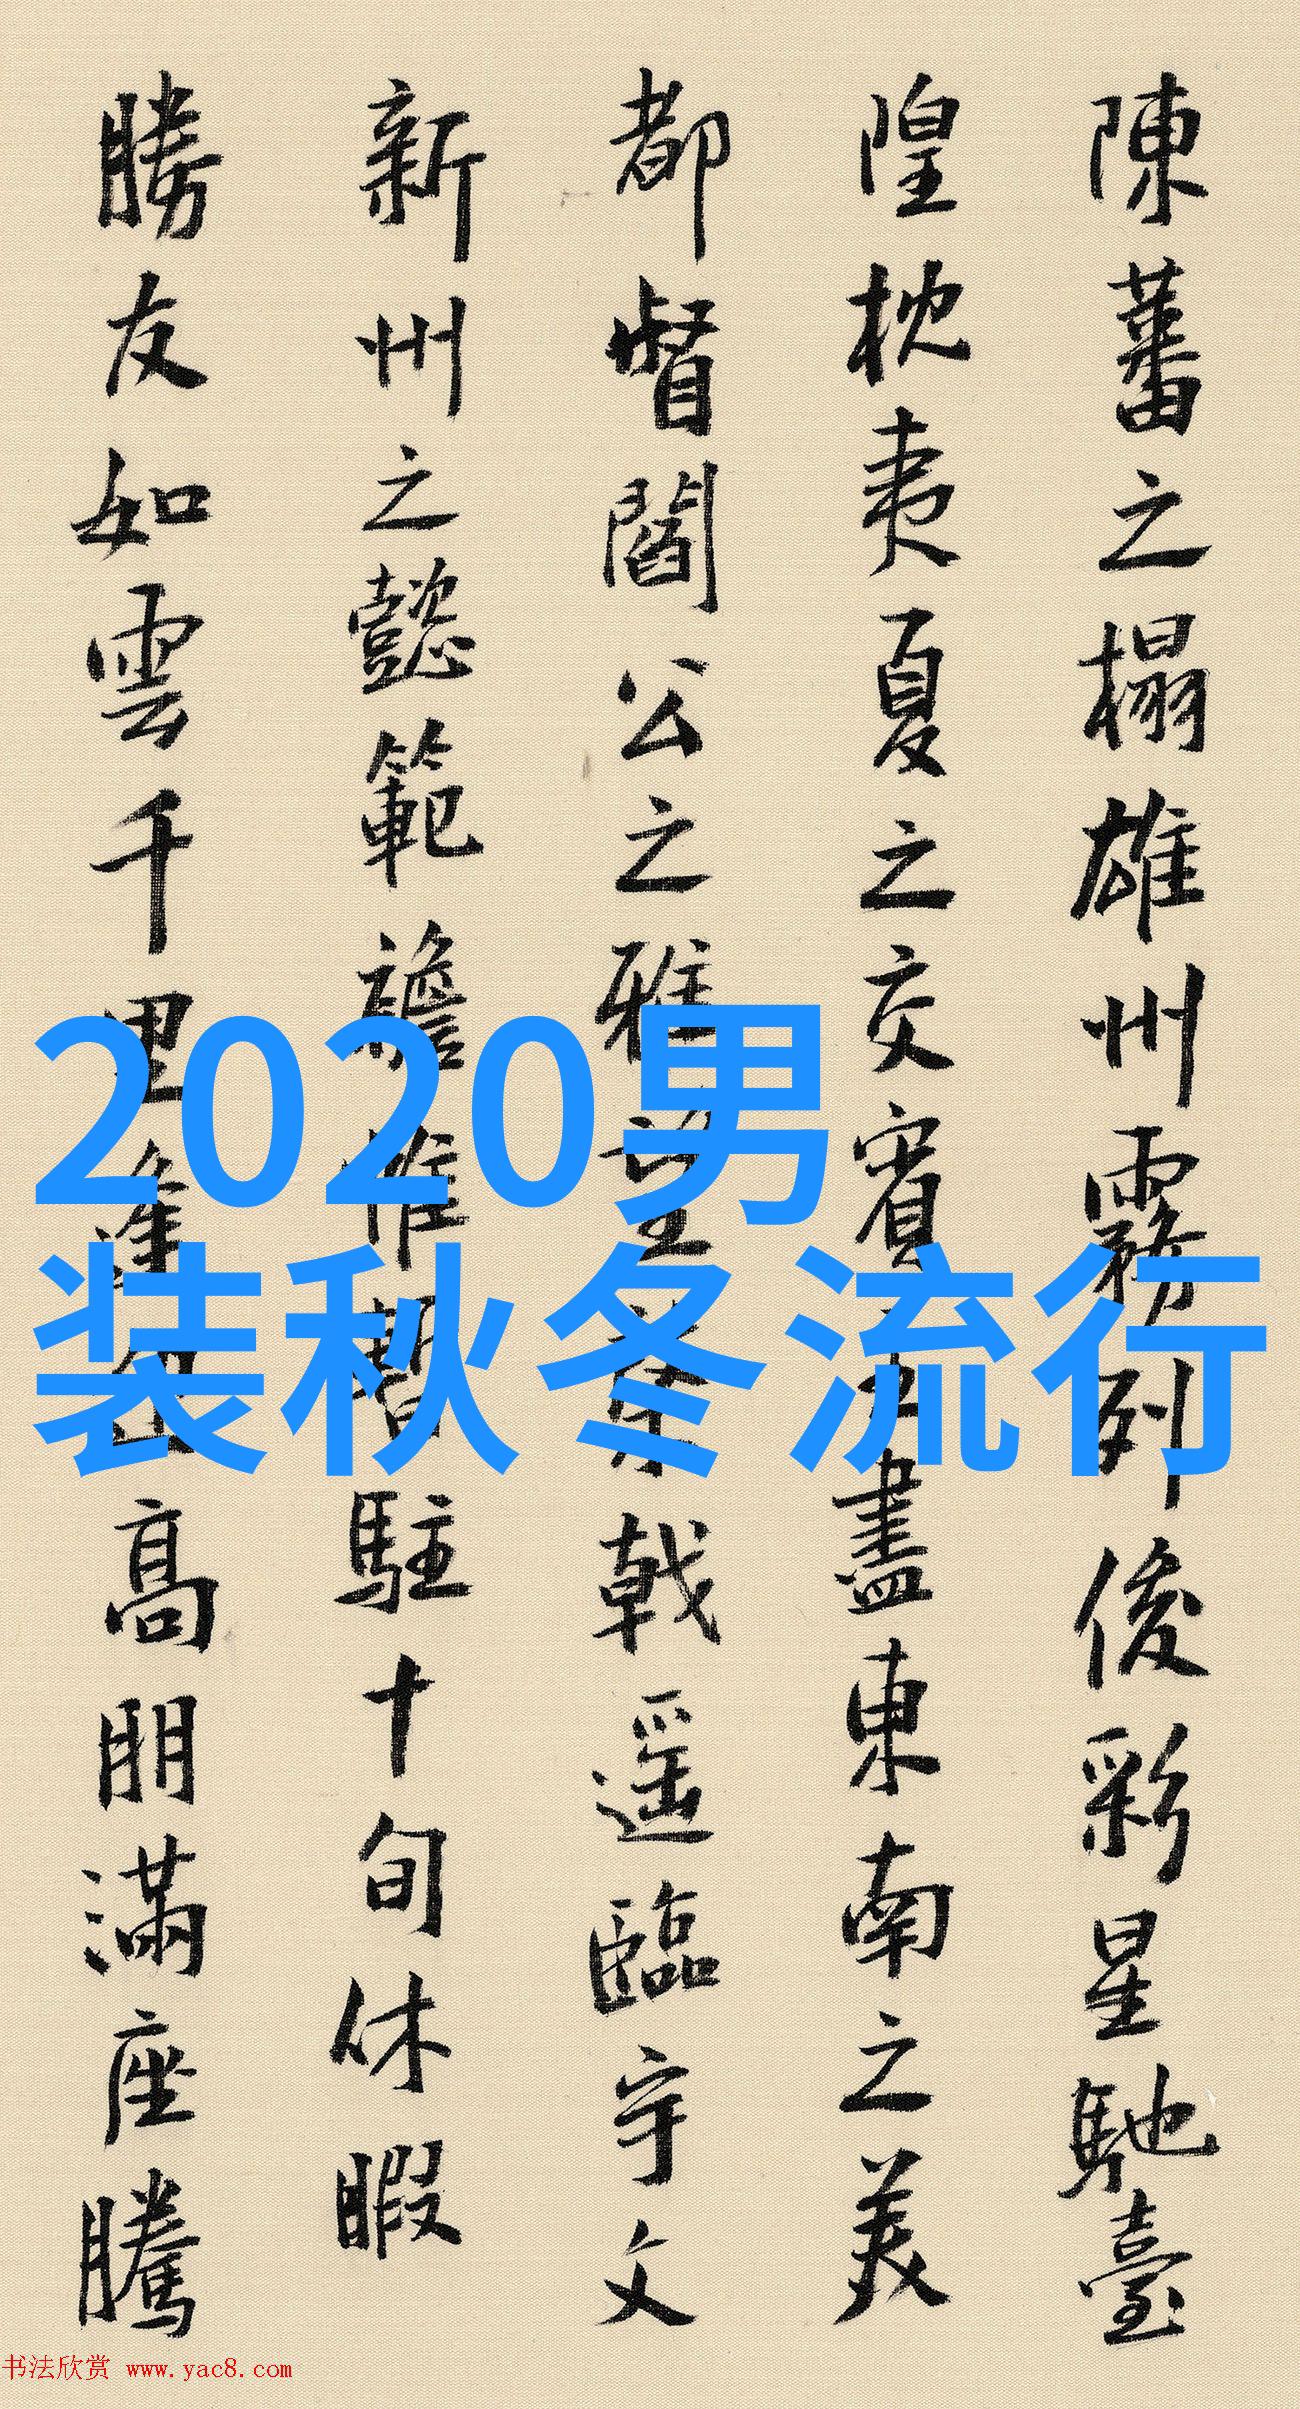 陳蕃之榻雄州霧列俊彩星馳臺
隍枕夷夏之交賓主盡東南之美
都督閻公之雅望棨戟遥臨宇文
新州之懿範襜惟暫駐十旬休暇
勝友如雲千里逢迎高朋滿座騰
2020男
装秋冬流行
书法欣赏 www.yac8.com